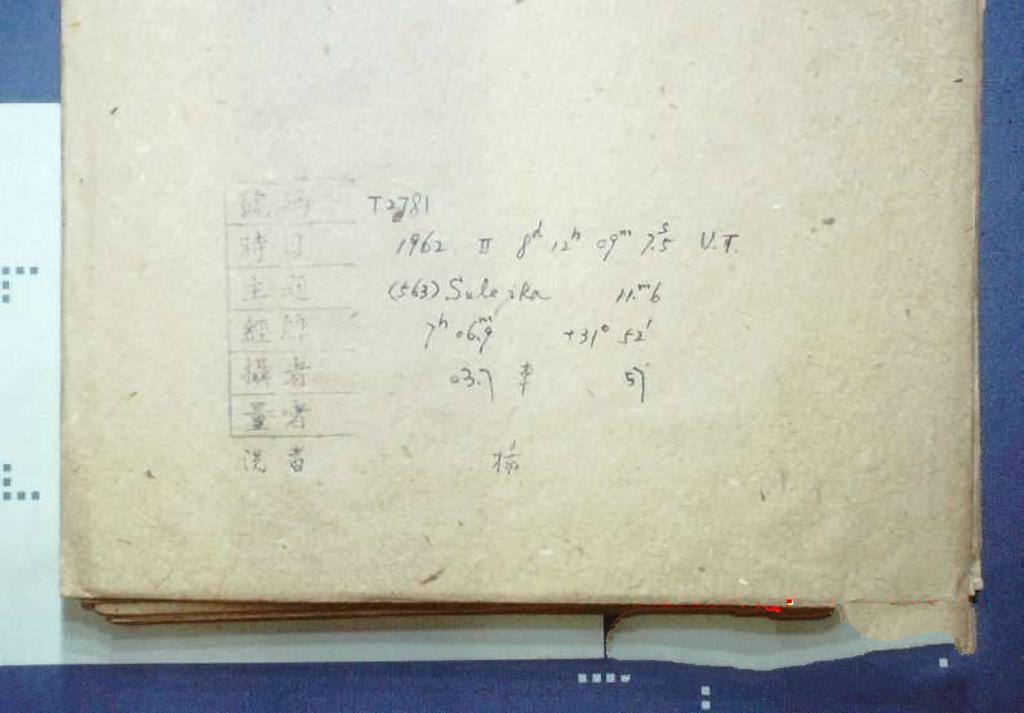 號碼 T2781
時日 1962 II 8d 12h 09m 7.5s U.T.
主題 (563) Suleika 11.m6
經緯 7h 06.m9 +31° 52'
攝者 03.7 57
量者
洗者